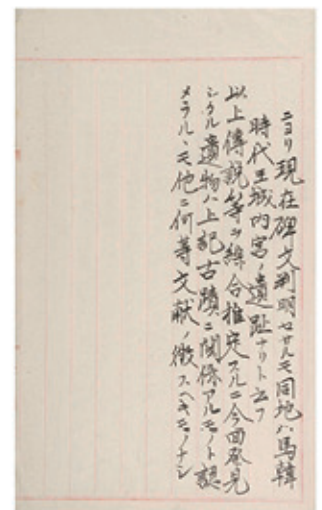 ニヨリ現在碑文判明セサルモ同地ハ馬韓
時代王城内宮ノ遺趾ナリト云フ
以上傳説等ヲ綜合推定スルニ今回發見
シタル遺物ハ上記古蹟ニ関係アルモノト認
メラルヽモ他ニ何等文献ノ徴スヘキモノナシ